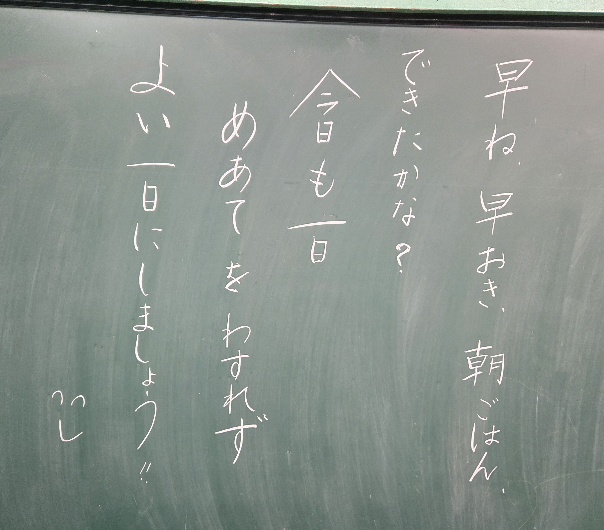 早ね、早おき、朝ごはん、
できたかな?
今日も一日
めあてをわすれず
よい一日にしましょう!!